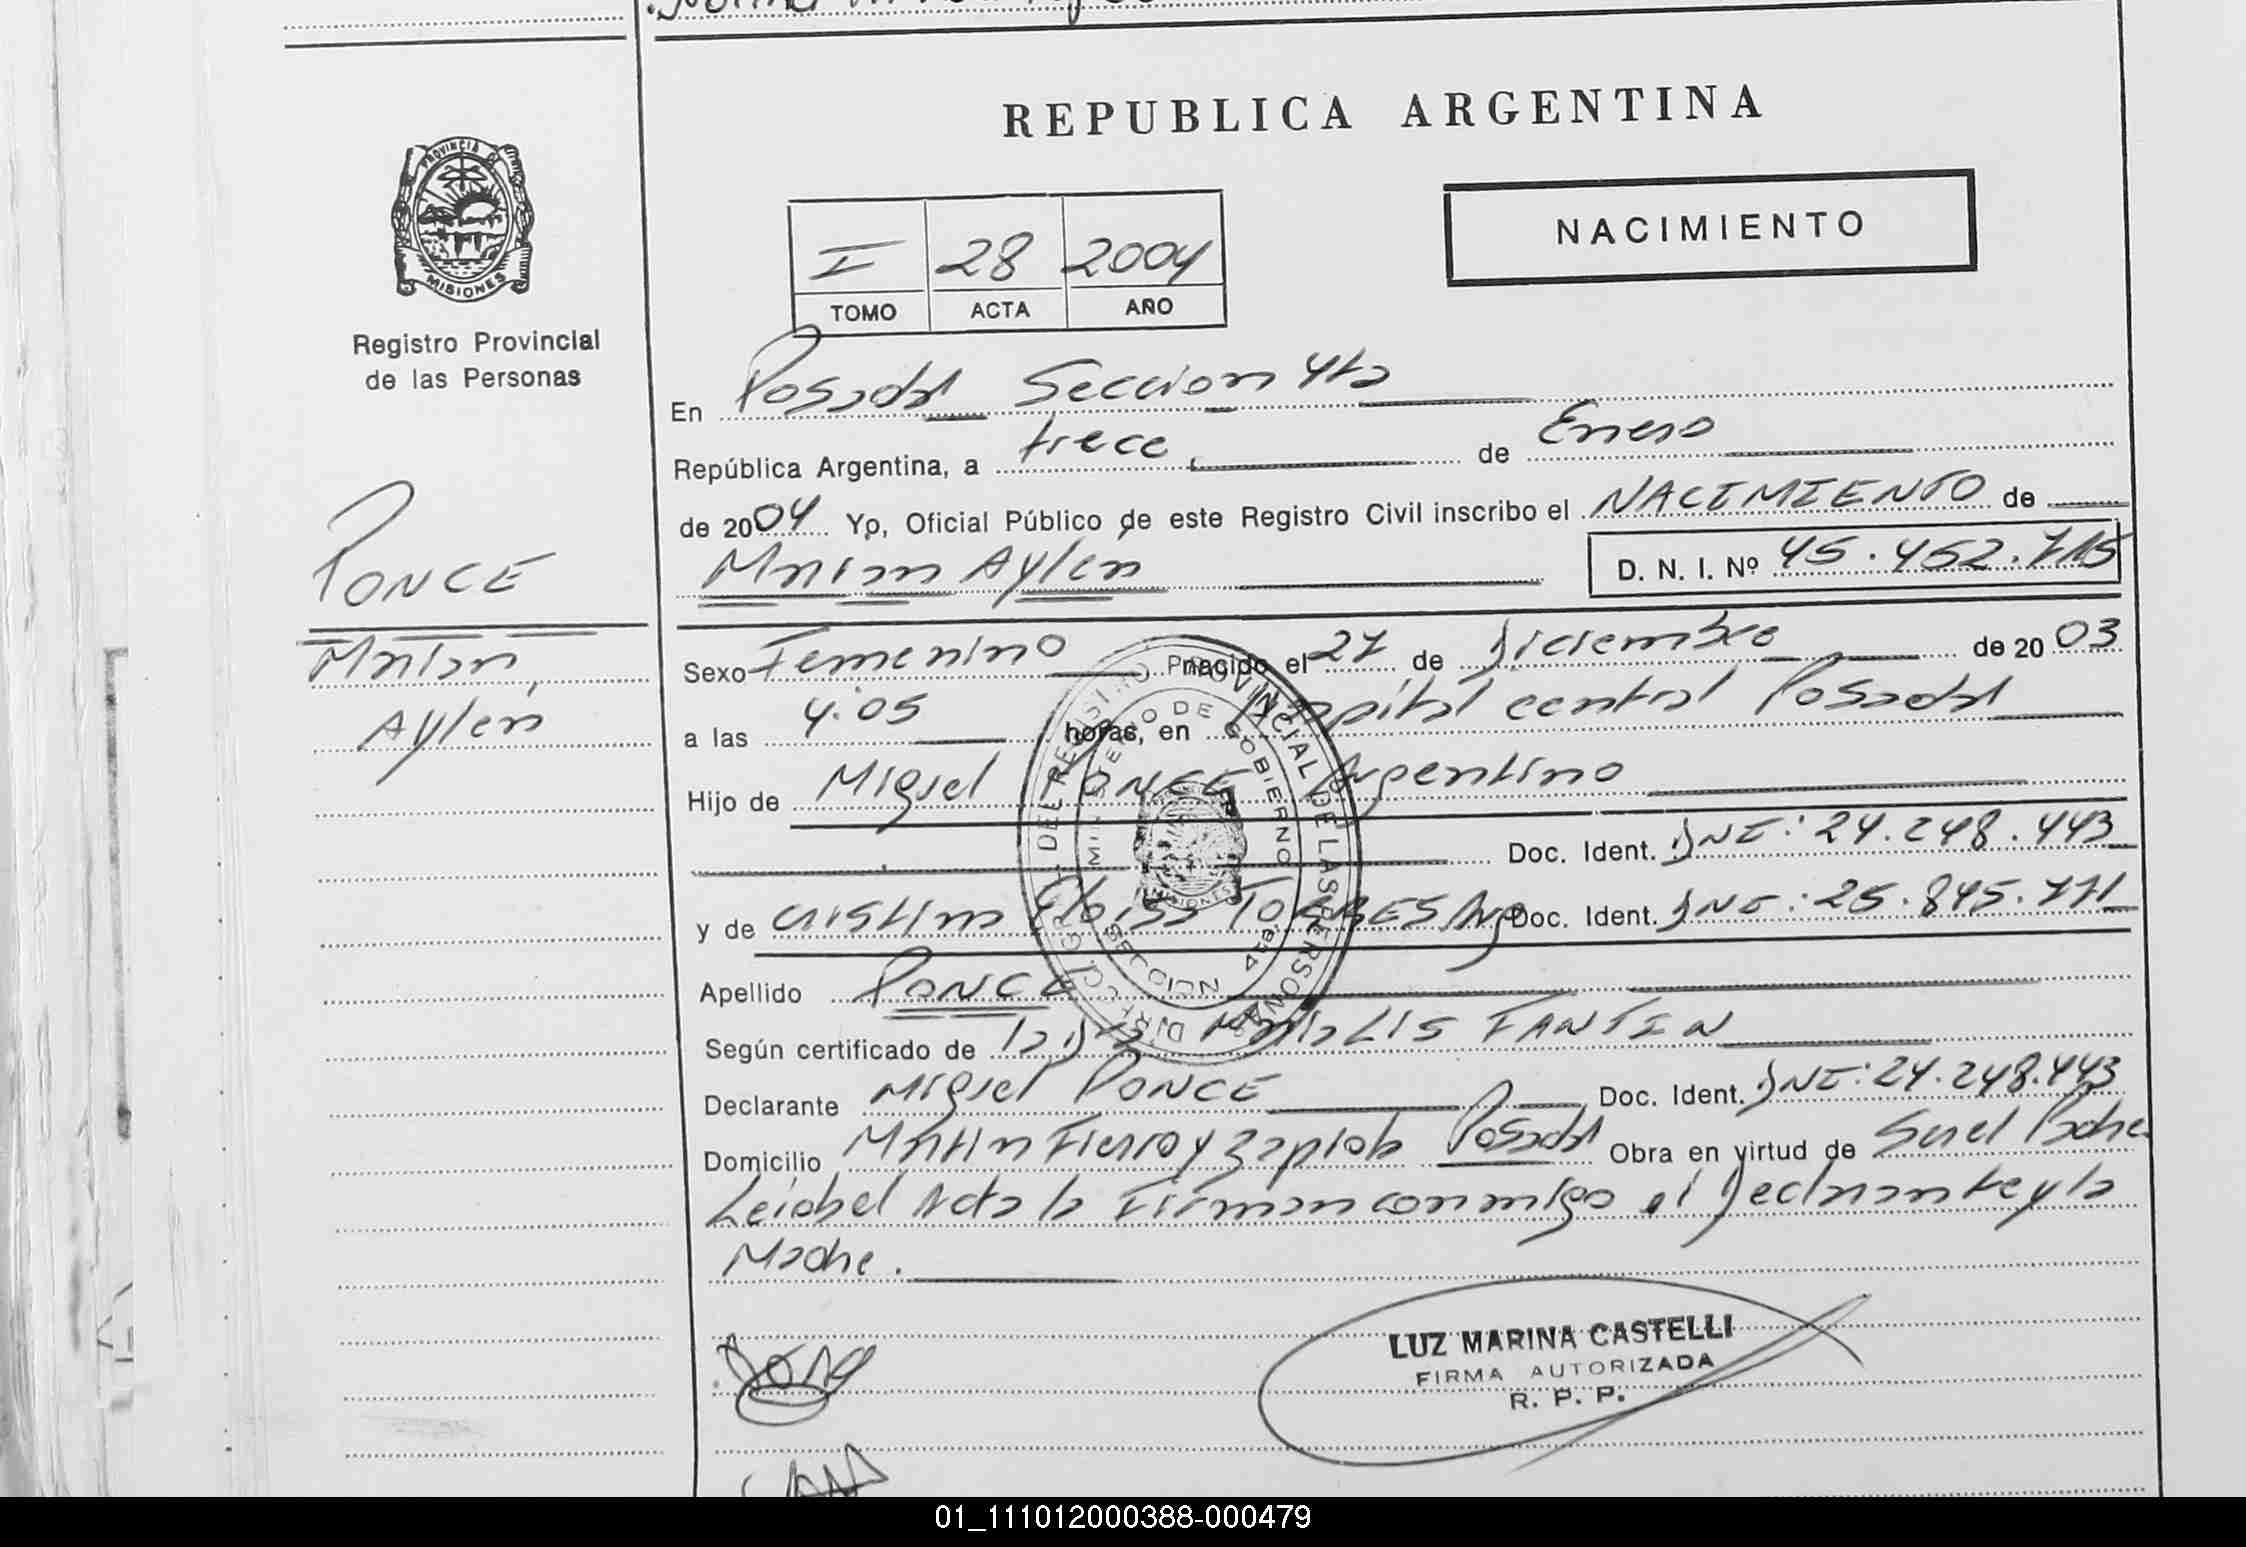 REPUBLICA ARGENTINA
NACIMIENTO
I 28 2004
TOMO ACTA AÑO
PROVINCIA DE
MISIONES
Registro Provincial
de las Personas
PONCE
Aylen
En Posadas Seccion 4ta
República Argentina, a trece de Enero
de 2004 Yo, Oficial Público de este Registro Civil inscribo el NACIMIENTO de
Aylen D. N. I. Nº 45.452.715
Sexo Femenino nacido el 27 de Diciembre de 2003
a las 4:05 horas, en Hospital central Posadas
Hijo de Miguel PONCE Argentino
Doc. Ident. DNI: 24.248.443
y de Cristina Eloisa TORRES Arg Doc. Ident. DNI: 25.845.771
Apellido PONCE
Según certificado de la Dra FANTIN
Declarante Miguel PONCE Doc. Ident. DNI: 24.248.443
Domicilio Martin Fierro y Zapiola Posadas Obra en virtud de Ser el Padre
Leida el Acta la Firman conmigo el Declarante y la
Madre.
DIRECC. GRAL. DEL REGISTRO PROVINCIAL DE LAS PERSONAS
MINISTERIO DE GOBIERNO
SECCION 4ta
MISIONES
LUZ MARINA CASTELLI
FIRMA AUTORIZADA
R. P. P.
01_111012000388-000479